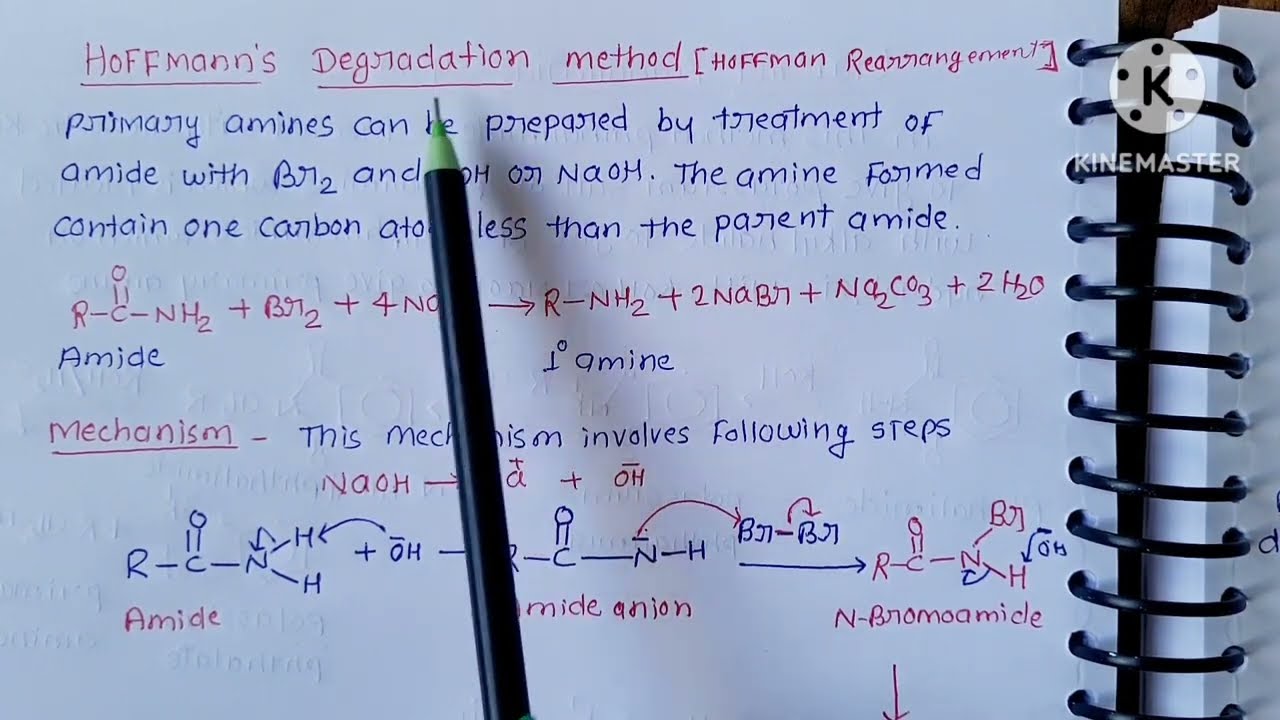 HOFFmann's Degradation method [HOFFman Rearrangement]
primary amines can be prepared by treatment of
amide with Br₂ and OH or NaOH. The amine Formed
contain one carbon ato less than the parent amide.
O
R-C-NH₂ + Br₂ + 4 Na → R-NH₂ + 2NaBr + Na₂CO₃ + 2H₂O
Amide 1° amine
Mechanism - This mechanism involves Following steps
NaOH → a⁺ + ŌH
R-C-N H H O + ŌH — R-C-N̄-H O Br-Br → R-C-N O Br H ŌH
Amide mide anion N-Bromoamide
K
KINEMASTER
d